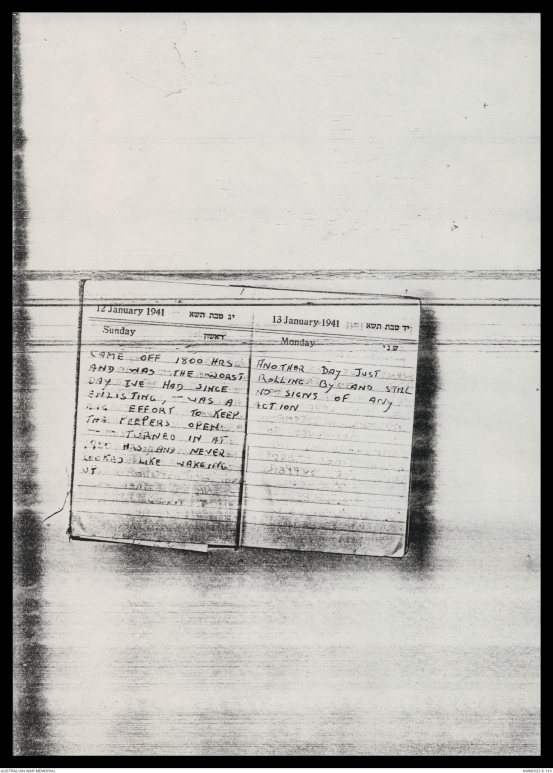 12 January 1941 יג טבת תשא
Sunday ראשון
CAME OFF 1800 HRS
AND WAS THE WORST
DAY I'VE HAD SINCE
ENLISTING, – WAS A
BIG EFFORT TO KEEP
THE PEEPERS OPEN
– TURNED IN AT
HRS AND NEVER
LOOKED LIKE WAKEING
UP.
13 January 1941 יד טבת תשא
Monday שני
ANOTHER DAY JUST
ROLLING BY AND STILL
NO SIGNS OF ANY
ACTION
AUSTRALIAN WAR MEMORIAL